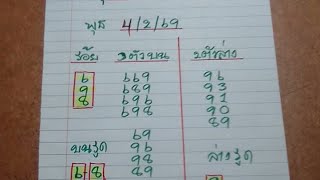 พุธ 4/2/69
ร้อย 3ตัวบน 2ตัวล่าง
6 669 96
9 689 93
8 696 91
698 90
89
69
บนรูด 96
98 ล่างรูด
6-8 89